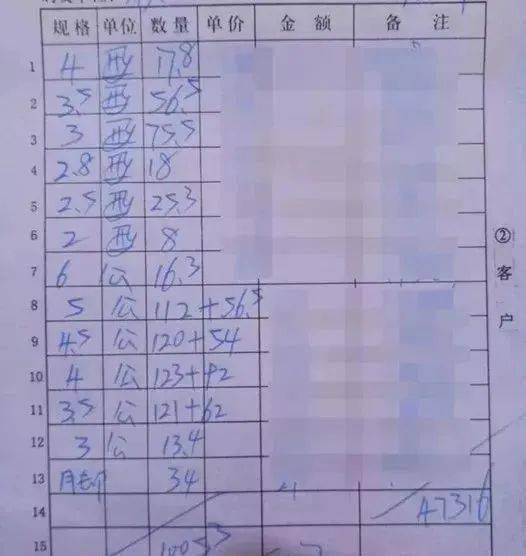 规格 单位 数量 单价 金额 备注
1 4 母 17.8
2 3.5 母 56.5
3 3 母 75.5
4 2.8 母 18
5 2.5 母 25.3
6 2 母 8
7 6 公 16.3
8 5 公 112+56.5
9 4.5 公 120+54
10 4 公 123+92
11 3.5 公 121+62
12 3 公 13.4
13 34
14 47316
15 1005.3
②客户